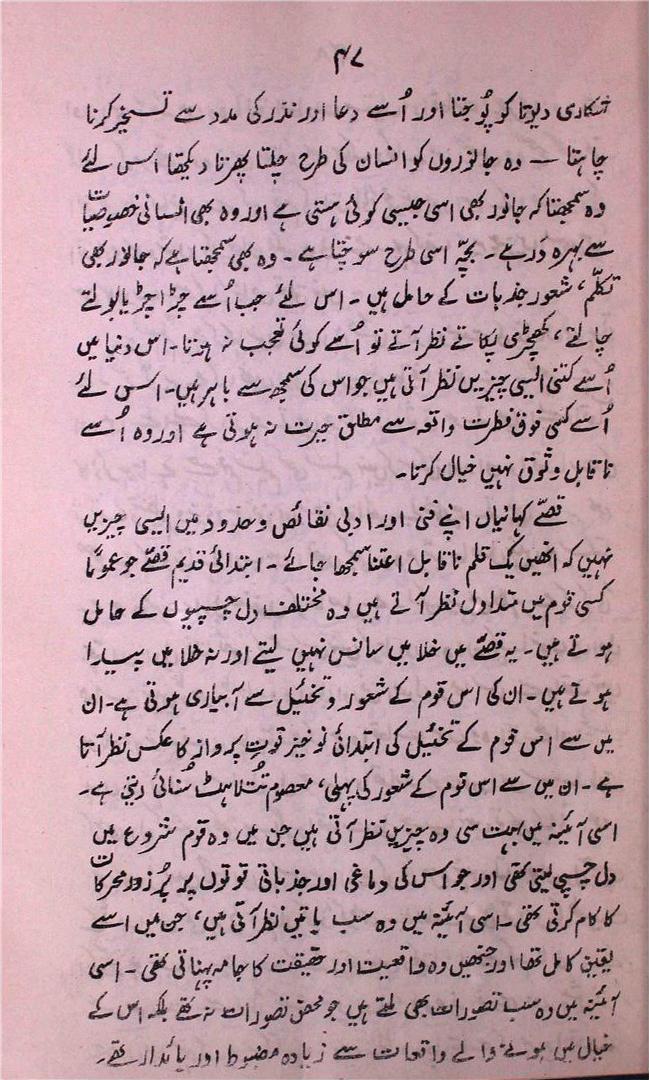 ۴۷
شکاری دیوتا کو پُوجتا اور اُسے دعا اور نذر کی مدد سے تسخیر کرنا
چاہتا — وہ جانوروں کو انسان کی طرح چلتا پھرتا دیکھتا اس لئے
وہ سمجھتا کہ جانور بھی اسی جیسی کوئی ہستی ہے اور وہ بھی انسانی خصوصیات
سے بہرہ دَر ہے ۔ بچّہ اسی طرح سوچتا ہے ۔ وہ بھی سمجھتا ہے کہ جانور بھی
تکلّم، شعور جذبات کے حامل ہیں ۔ اس لئے جب اُسے چڑا چڑیا بولتے
چالتے، کھچڑی پکاتے نظر آتے تو اُسے کوئی تعجب نہ ہوتا ۔ اس دنیا میں
اُسے کتنی ایسی چیزیں نظر آتی ہیں جو اس کی سمجھ سے باہر ہیں ۔ اس لئے
اُسے کسی فوق فطرت واقعہ سے مطلق حیرت نہ ہوتی ہے اور وہ اُسے
ناقابل وثوق نہیں خیال کرتا ۔
قصّے کہانیاں اپنے فنی اور ادبی نقائص و حدود میں ایسی چیزیں
نہیں کہ انھیں یک قلم ناقابل اعتنا سمجھا جائے ۔ ابتدائی قدیم قصّے جو عموماً
کسی قوم میں متداول نظر آتے ہیں وہ مختلف دل چسپیوں کے حامل
ہوتے ہیں ۔ یہ قصّے میں خلا میں سانس نہیں لیتے اور نہ خلا میں پیدا
ہوتے ہیں ۔ ان کی اس قوم کے شعور و تخئیل سے آبیاری ہوتی ہے ۔ ان
میں سے اس قوم کے تخئیل کی ابتدائی نوخیز قوتِ پرواز کا عکس نظر آتا
ہے ۔ ان میں سے اس قوم کے شعور کی پہلی، معصوم تُتلاہٹ سُنائی دیتی ہے ۔
اسی آئینہ میں بہت سی وہ چیزیں نظر آتی ہیں جن میں وہ قوم شروع میں
دل چسپی لیتی تھی اور جو اس کی دماغی اور جذباتی قوتوں پر پُر زور محرکات
کا کام کرتی تھی ۔ اسی آئینہ میں وہ سب باتیں نظر آتی ہیں، جن میں اسے
یقین کامل تھا اور جنھیں وہ واقعیت اور حقیقت کا جامہ پہناتی تھی ۔ اسی
آئینہ میں وہ سب تصورات بھی ملتے ہیں جو محض تصورات نہ تھے بلکہ اس کے
خیال میں ہونے والے واقعات سے زیادہ مضبوط اور پائدار تھے ۔